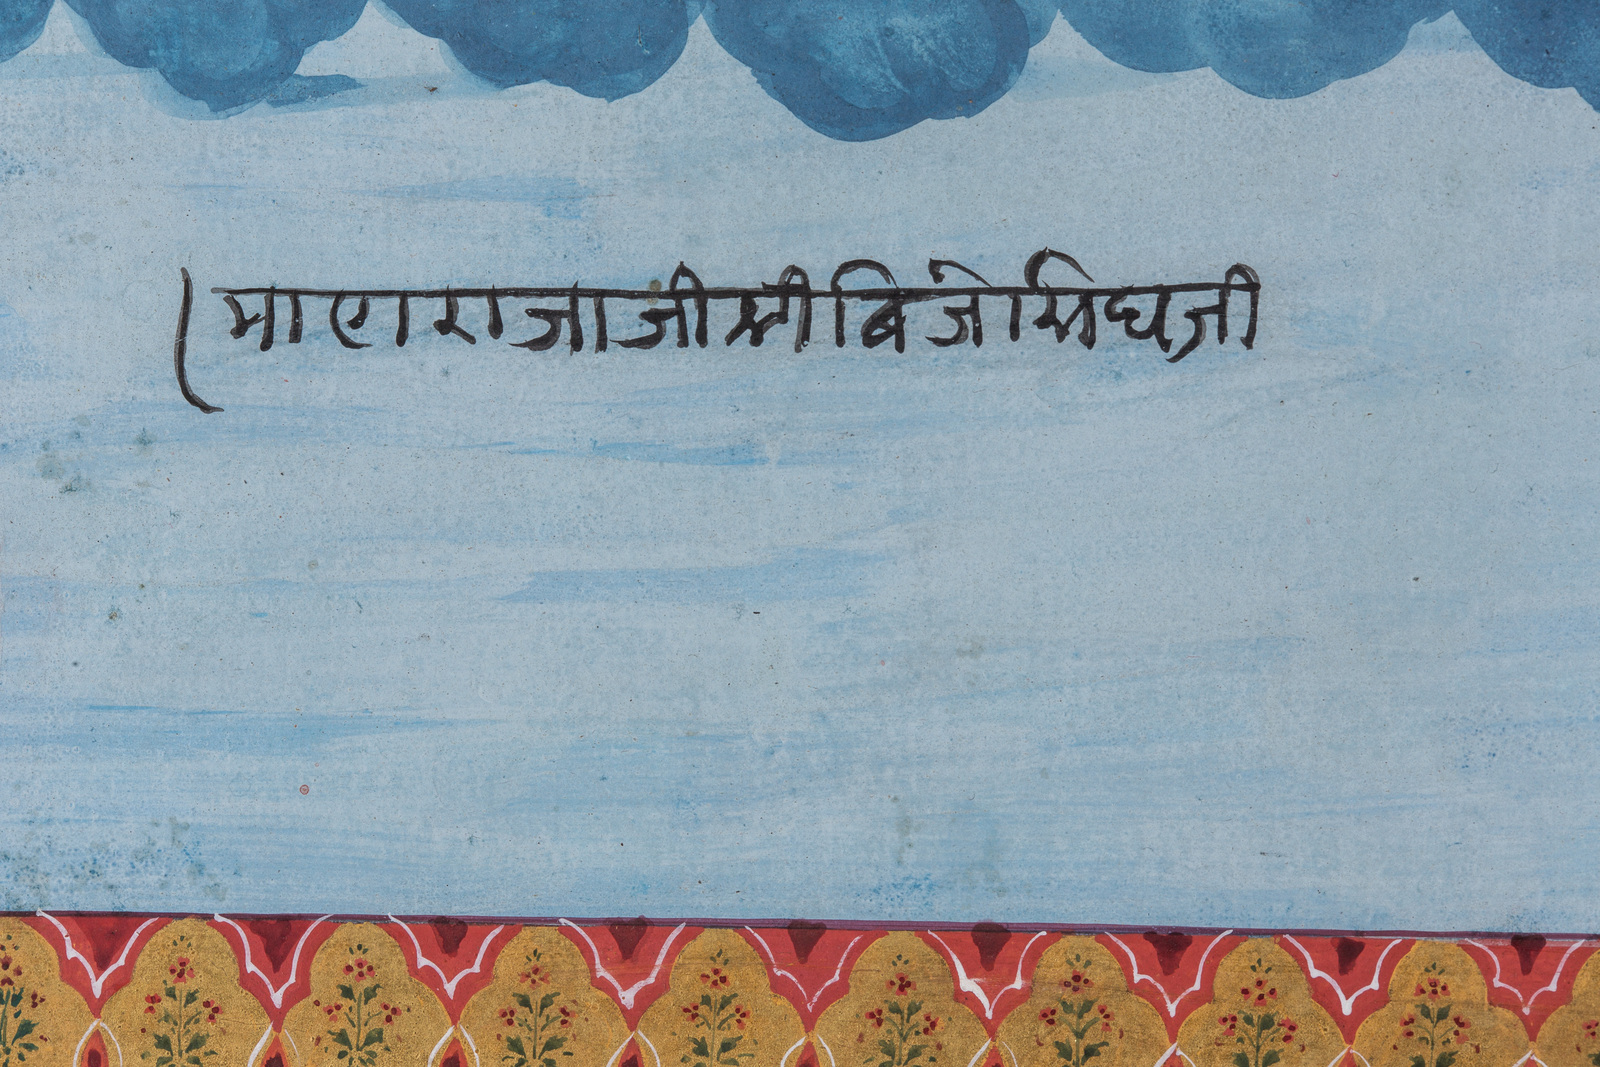 । माहाराजाजी श्री बिजेसिघजी